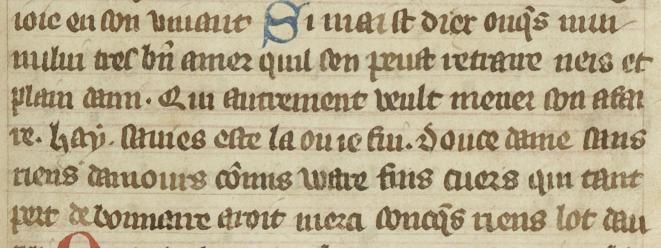 ioie en son viuant Si mait dier onq̄s mui
nului tres bn̄ amer quil sen peust retraire neis et
plain dam. Qui autrement veult mener son afai
re. hay. saues este la ou ie fui. Douce dame sans
riens damours co᷒nns vvare fins cuers qui tant
pert debonnaire aroit merci concq̄s riens lot dau